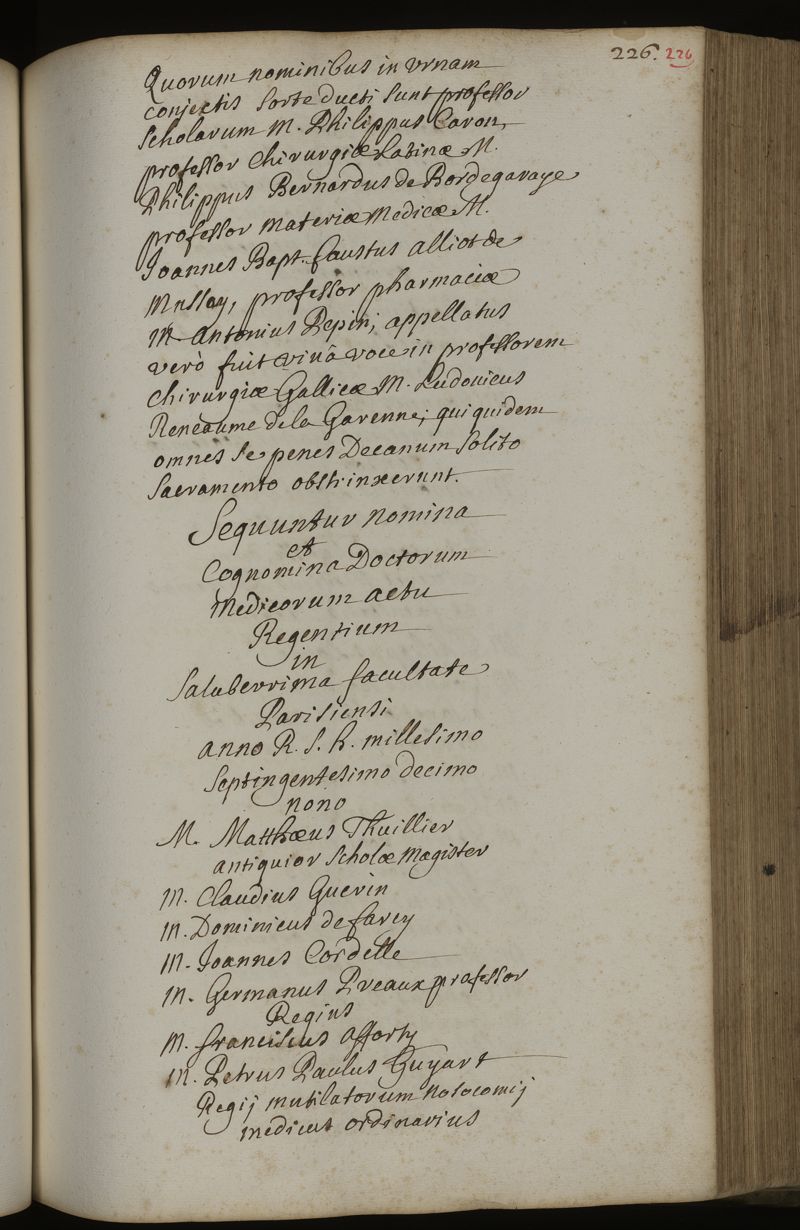 226. 226
Quorum nominibus in urnam
conjectis sorte ducti sunt professor
scholarum M. Philippus Caron,
professor chirurgiæ Latinæ M.
Philippus Bernardus de Bordegaraye
professor materiæ Medicæ M.
Joannes Bapt. faustus alliot de
Mussay, professor pharmaciæ
M. Antonius Pepin; appellatus
verò fuit vivâ voce in professorem
chirurgiæ Gallicæ M. Ludovicus
Reneaume de la Garenne; qui quidem
omnes se penes Decanum solito
sacramento obstrinxerunt.
Sequuntur nomina
et
Cognomina Doctorum
Medicorum actu
Regentium
in
Saluberrima facultate
Parisiensi
anno R. S. h. millesimo
septingentesimo decimo
nono
M. Matthæus Thuillier
antiquior scholæ Magister
M. Claudius Guerin
M. Dominicus de farcy
M. Joannes Cordelle
M. Germanus Preaux professor
Regius
M. franciscus afforty
M. Petrus Paulus Guyart
Regij mutilatorum nosocomij
medicus ordinarius